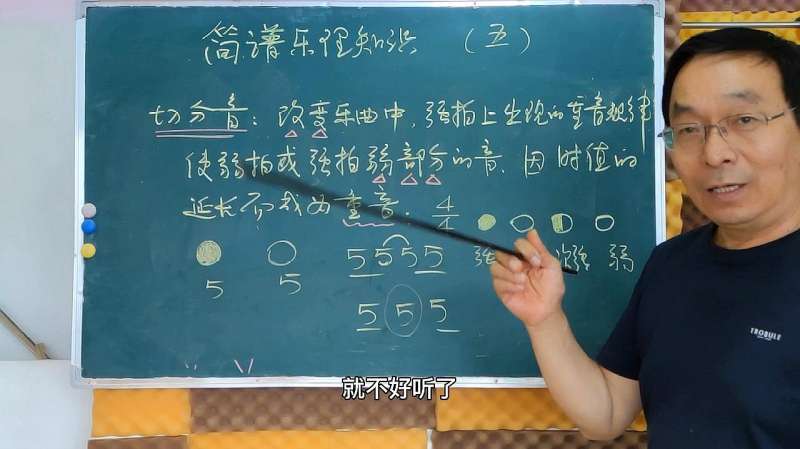 简谱乐理知识 (五)
切分音: 改变乐曲中, 强拍上出现的重音规律
使弱拍或强拍弱部分的音, 因时值的
延长而成为重音. 4/4
强 次强 弱
5 5 5 5 5 5
5 5 5
TROBULE
就不好听了